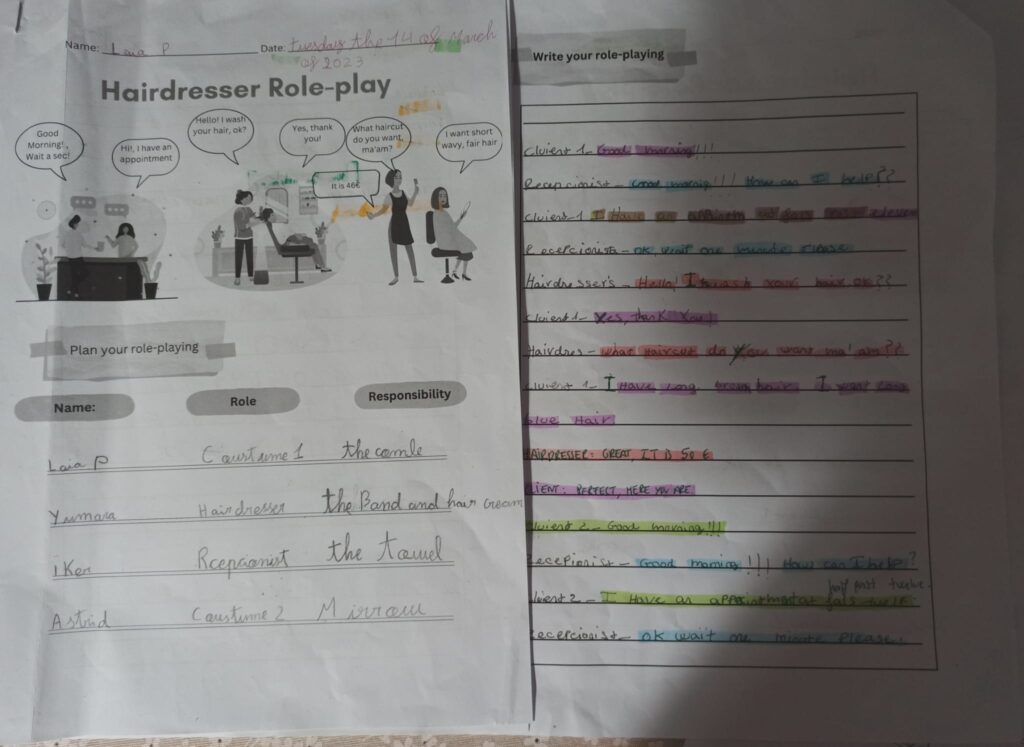 Name: Laia P Date: tuesday the 14 of March
of 2023
Hairdresser Role-play
Good
Morning!,
Wait a sec!
Hi!, I have an
appointment
Hello! I wash
your hair, ok?
Yes, thank
you!
What haircut
do you want,
ma'am?
It is 46€
I want short
wavy, fair hair
Plan your role-playing
Name: Role Responsibility
Laia P 1 the
Yumara Hairdresser the Band and hair cream
iKer Rcepcionist the
Astrid 2
Write your role-playing
Cluient 1- Good morning!!!
Recepcionist- Good mornig!!! How can I help??
Cluient 1 I Have an eleven
Recepcionist- OK, wait one minute please
Hairdresser's- Hello! I wash your hair OK??
Cluient 1- Yes, thank You!
Hairdres- what Haircut do You want ma'am??
Cluient 1- I Have long brown hair I want long
blue Hair
HAIRDRESSER: GREAT, IT IS 50 €
CLIENT: PERFECT, HERE YOU ARE
Cluient 2- Good morning!!!
Recepionist- Good morning!!! How can I help?
half past twelve.
Cluient 2- I Have an
Recepcionist- OK wait one minute please.